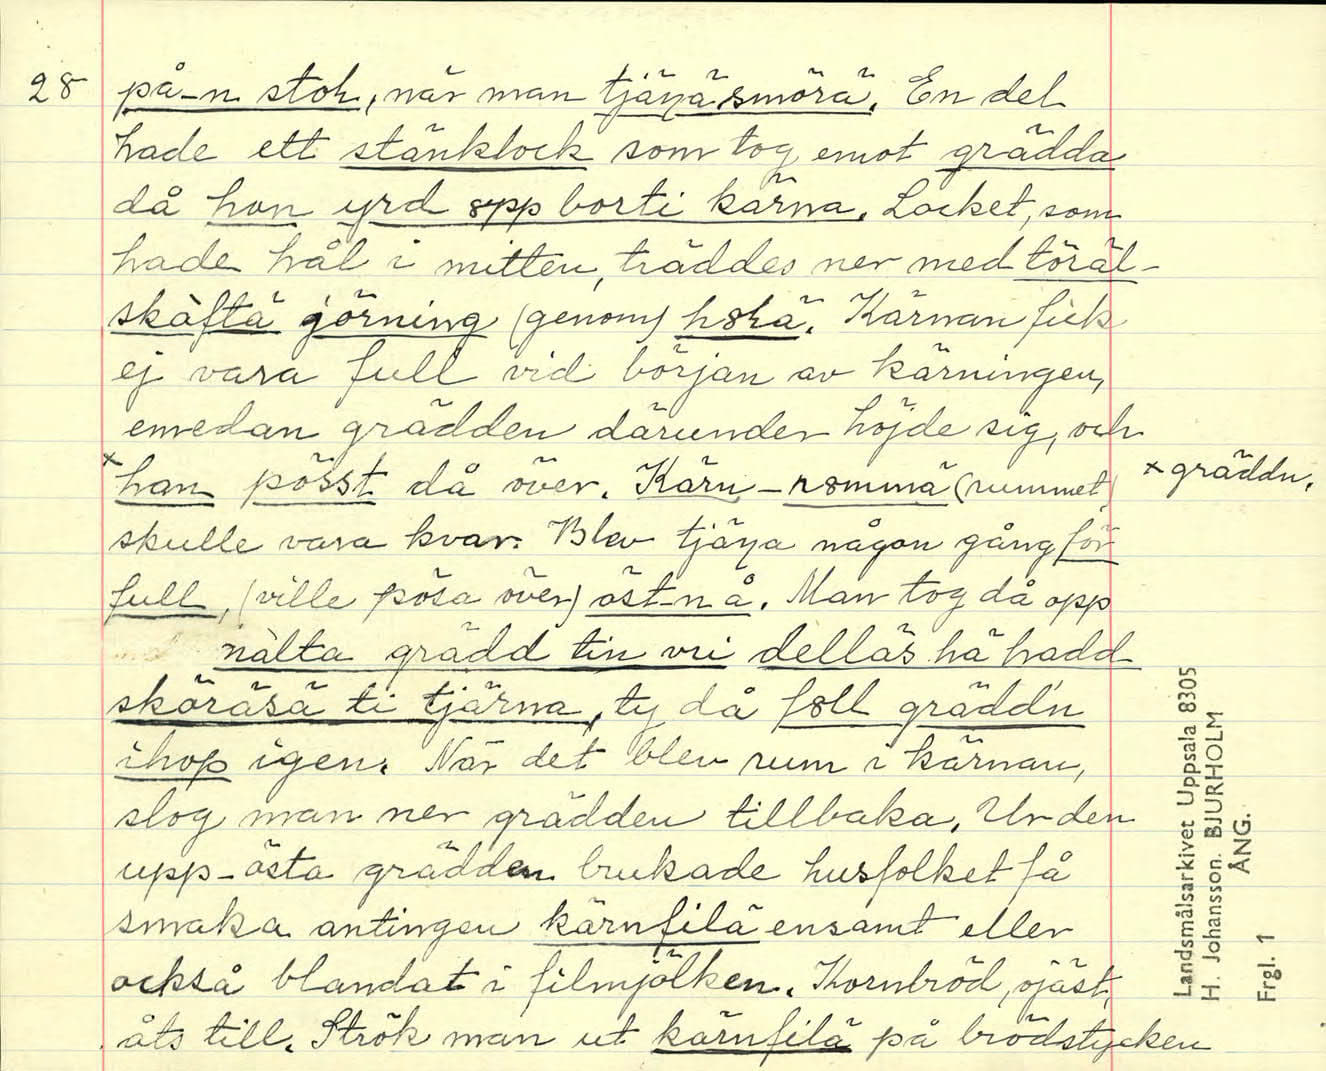 28 på-n stok, när man tjäṇa smörä. En del
hade ett stänklock som tog emot grädda
då hon yrd opp borti kärna. Locket, som
hade hål i mitten, träddes ner med töräl-
skàftä jörning (genom) h8hä. Kärnan fick
ej vara full vid början av kärningen,
emedan grädden därunder höjde sig, och
×han pösst då över. Kärn-r8mmä (rummet)
×gräddn.
skulle vara kvar. Blev tjäṇa någon gång för
full, (ville pösa över) öst-n å. Man tog då opp
nàlta grädd tin vri delläs hä hadd
sköräsä ti tjärna, ty då f8ll gräddn
ihop igen. När det blev rum i kärnan,
slog man ner grädden tillbaka. Ur den
upp-östa grädden brukade husfolket få
smaka antingen kärnfilä ensamt eller
också blandat i filmjölken. Kornbröd, ojäst,
åts till. Strök man ut kärnfilä på brödstycken
Landsmålsarkivet Uppsala 8305
H. Johansson. BJURHOLM
ÅNG.
Frgl. 1